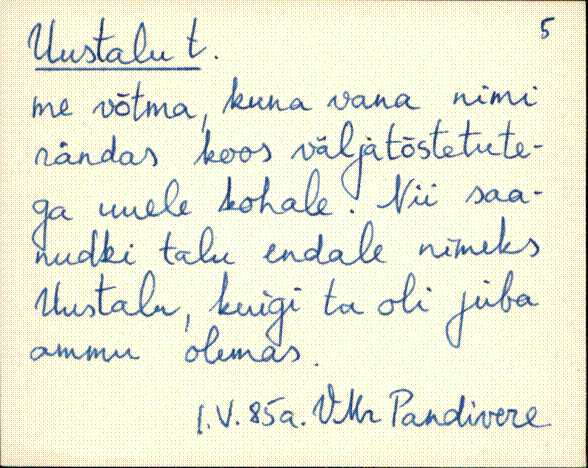 5
Uustalu t.
me võtma, kuna vana nimi
rändas koos väljatõstetute-
ga uuele kohale. Nii saa-
nudki talu endale nimeks
Uustalu, kuigi ta oli juba
ammu olemas.
1.V.85a. VMr Pandivere